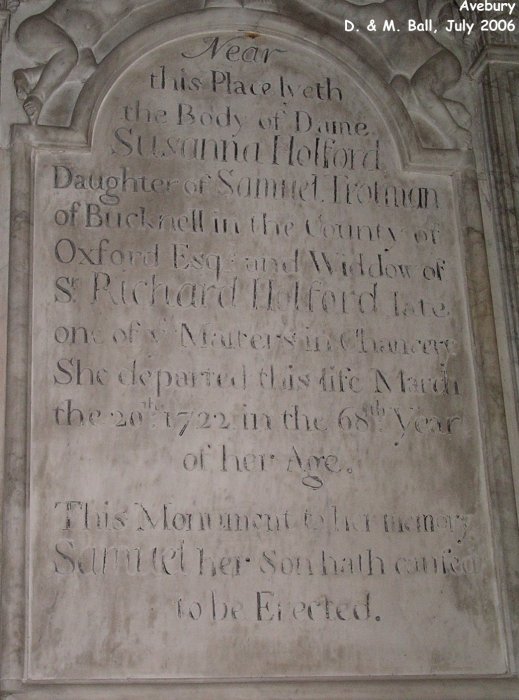 Avebury
D. & M. Ball, July 2006
Near
this Place lyeth
the Body of Dame
Susanna Holford
Daughter of Samuel Trotman
of Bucknell in the County of
Oxford Esqr. and Widdow of
Sr. Richard Holford late
one of ye Masters in Chancery
She departed this life March
the 20th. 1722 in the 68th. Year
of her Age.
This Monument to her memory
Samuel her Son hath caused
to be Erected.